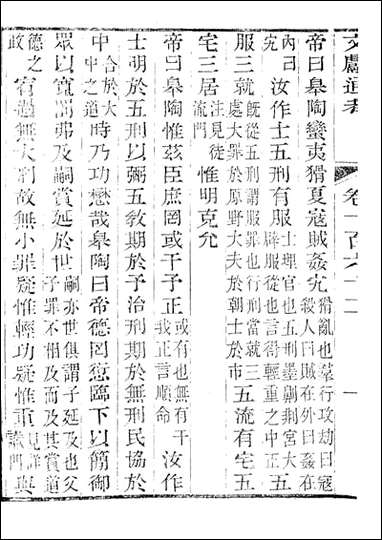 文獻通考 卷一百六十二 一
帝曰皋陶蠻夷猾夏寇賊姦宄猾亂也羣行攻劫曰寇殺人曰賊在外曰姦在
內曰宄汝作士五刑有服士理官也五刑墨劓剕宮大辟服從也言得輕重之中正五
服三就既從五刑謂服罪也行刑當就三處大罪於原野大夫於朝士於市五流有宅五
宅三居注見徒流門惟明克允
帝曰皋陶惟茲臣庶罔或干予正或有也無有干我正言順命汝作
士明於五刑以弼五教期於予治刑期於無刑民協於
中合於大中之道時乃功懋哉皋陶曰帝德罔愆臨下以簡御
眾以寬罰弗及嗣賞延於世嗣亦世俱謂子延及也父子罪不相及而及其賞道
德之政宥過無大刑故無小罪疑惟輕功疑惟重見詳讞門與